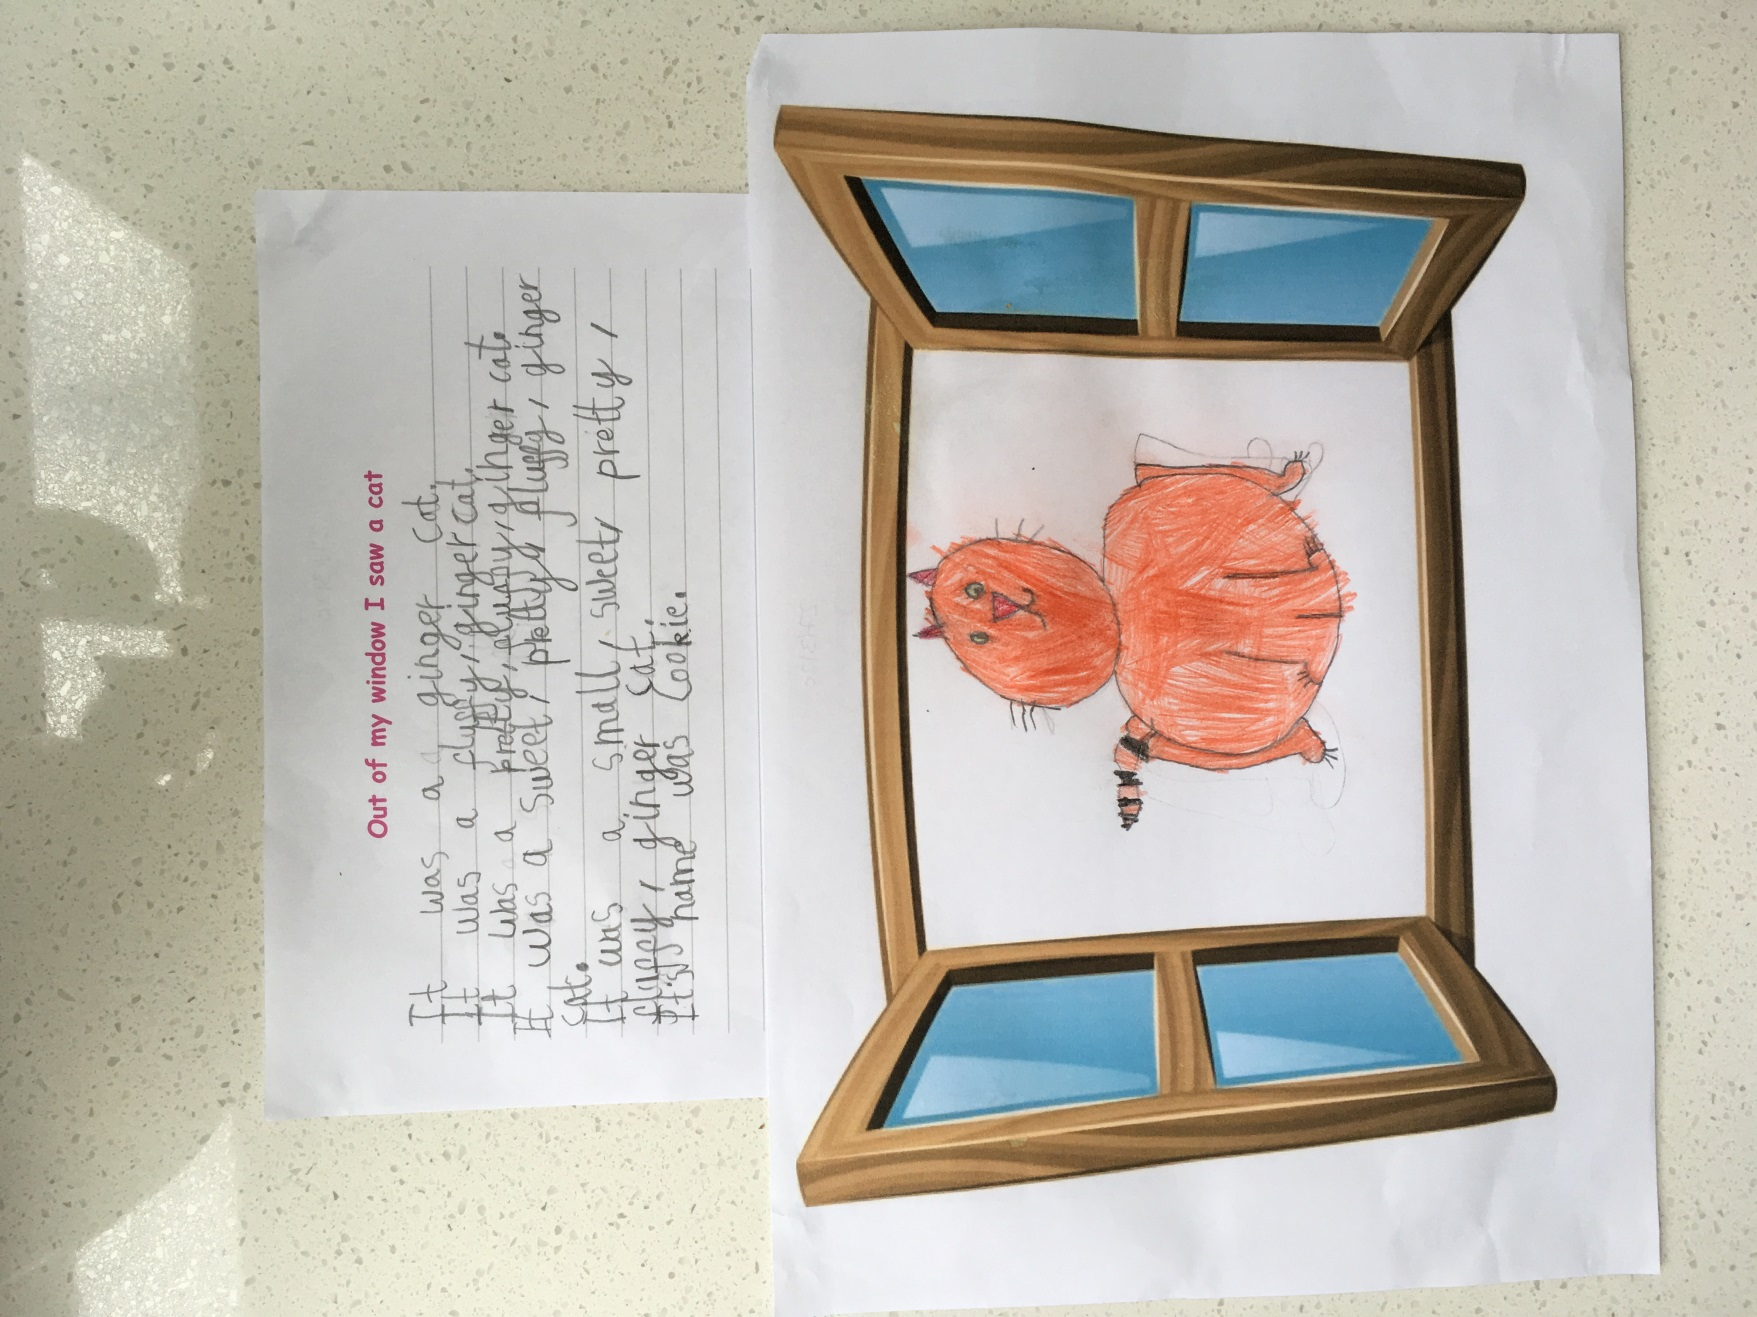 Out of my window I saw a cat
It was a ginger cat.
It was a fluffy, ginger cat.
It was a pretty, fluffy, ginger cat.
It was a sweet, pretty, fluffy, ginger
cat.
It was a small, sweet, pretty,
fluffy, ginger cat.
It's name was Cookie.